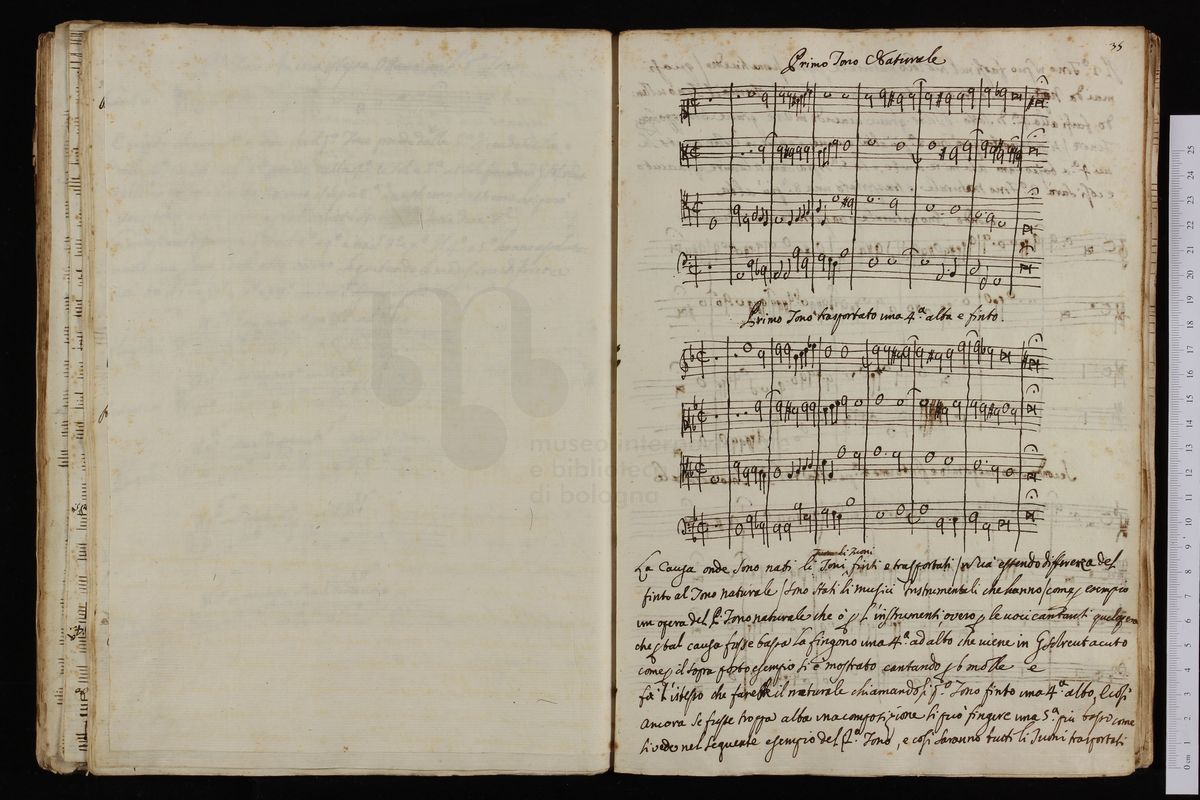 35
Primo Tono Naturale
Primo Tono trasportato una 4.ª alta e finto.
li suoni
La Causa onde sono nati li Toni finti e trasportati essendo differenza del
finto al Tono naturale sono stati li musici Instrumentali che hanno come esempio
un opera del P.º Tono naturale che ò p L'instrumenti overo p le voci cantanti quel opera
che p tal causa fusse bassa la fingono una 4.ª ad alto che viene in Gsolreut acuto
come il sopra posto esempio si è mostrato cantando p b molle e
fà L'istesso che farebbe il naturale chiamandosi p.º Tono finto una 4.ª alto, E così
ancora se fusse troppa alta una compositione si può fingere una 5.ª più basso come
si vede nel sequente esempio del P.º Tono, e così saranno tutti li Tuoni trasportati
museo internaz
e bibliotec
di bologna
0 cm 1 2 3 4 5 6 7 8 9 10 11 12 13 14 15 16 17 18 19 20 21 22 23 24 25